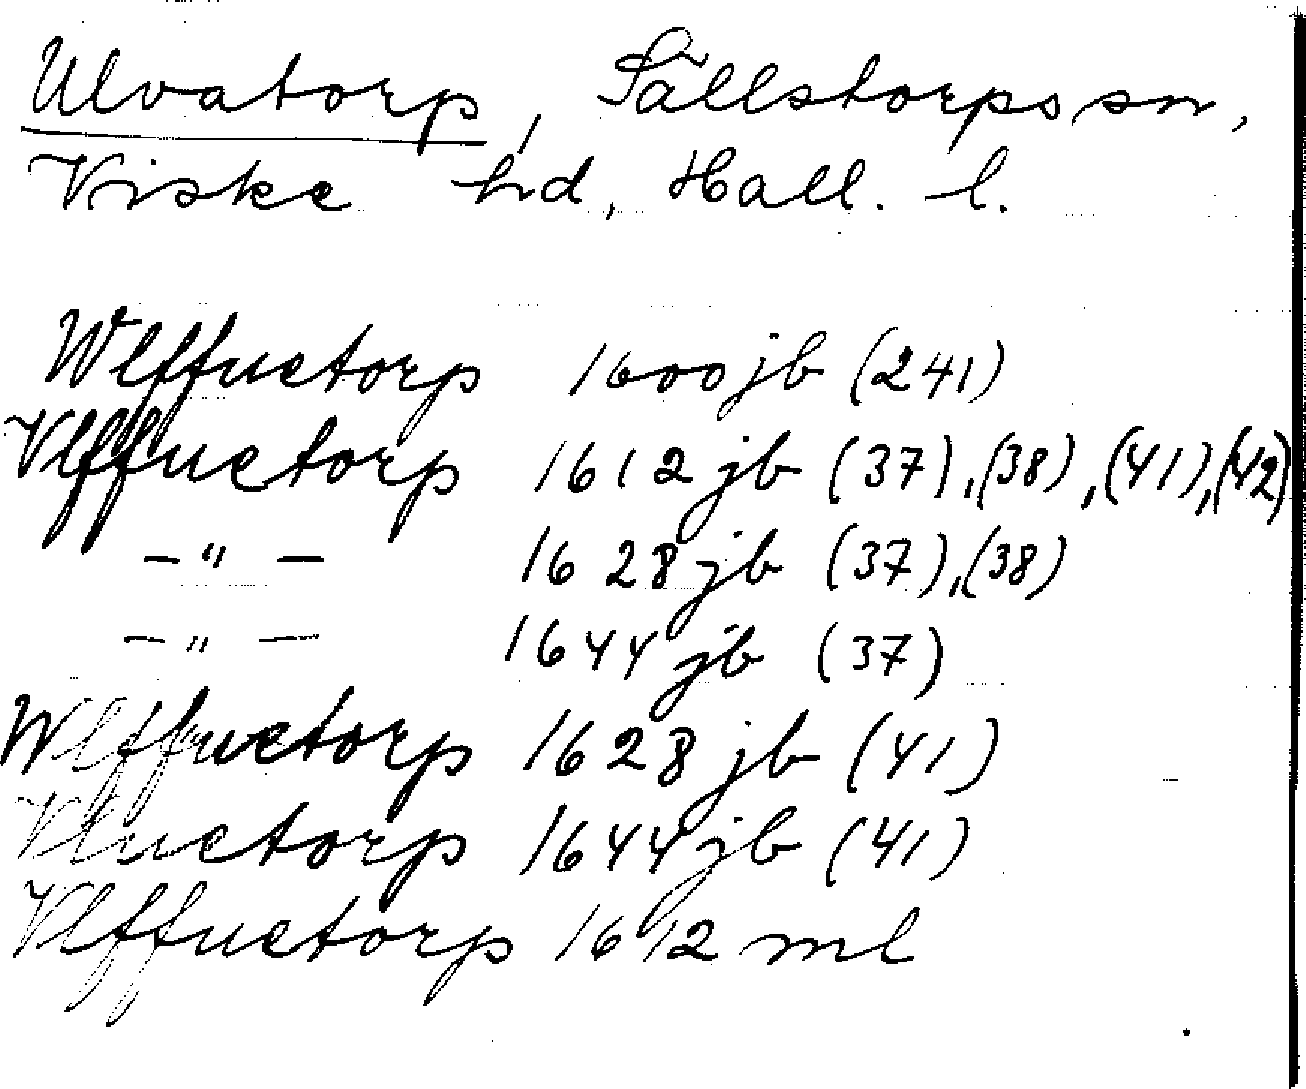 Ulvatorp, Sällstorps sn,
Viske hd, Hall. l.
Wlffuetorp 1600 jb (241)
Vlffuetorp 1612 jb (37), (38), (41), (42)
—"— 1628 jb (37), (38)
—"— 1644 jb (37)
Wlffuetorp 1628 jb (41)
Vluetorp 1644 jb (41)
Vlffuetorp 1612 ml